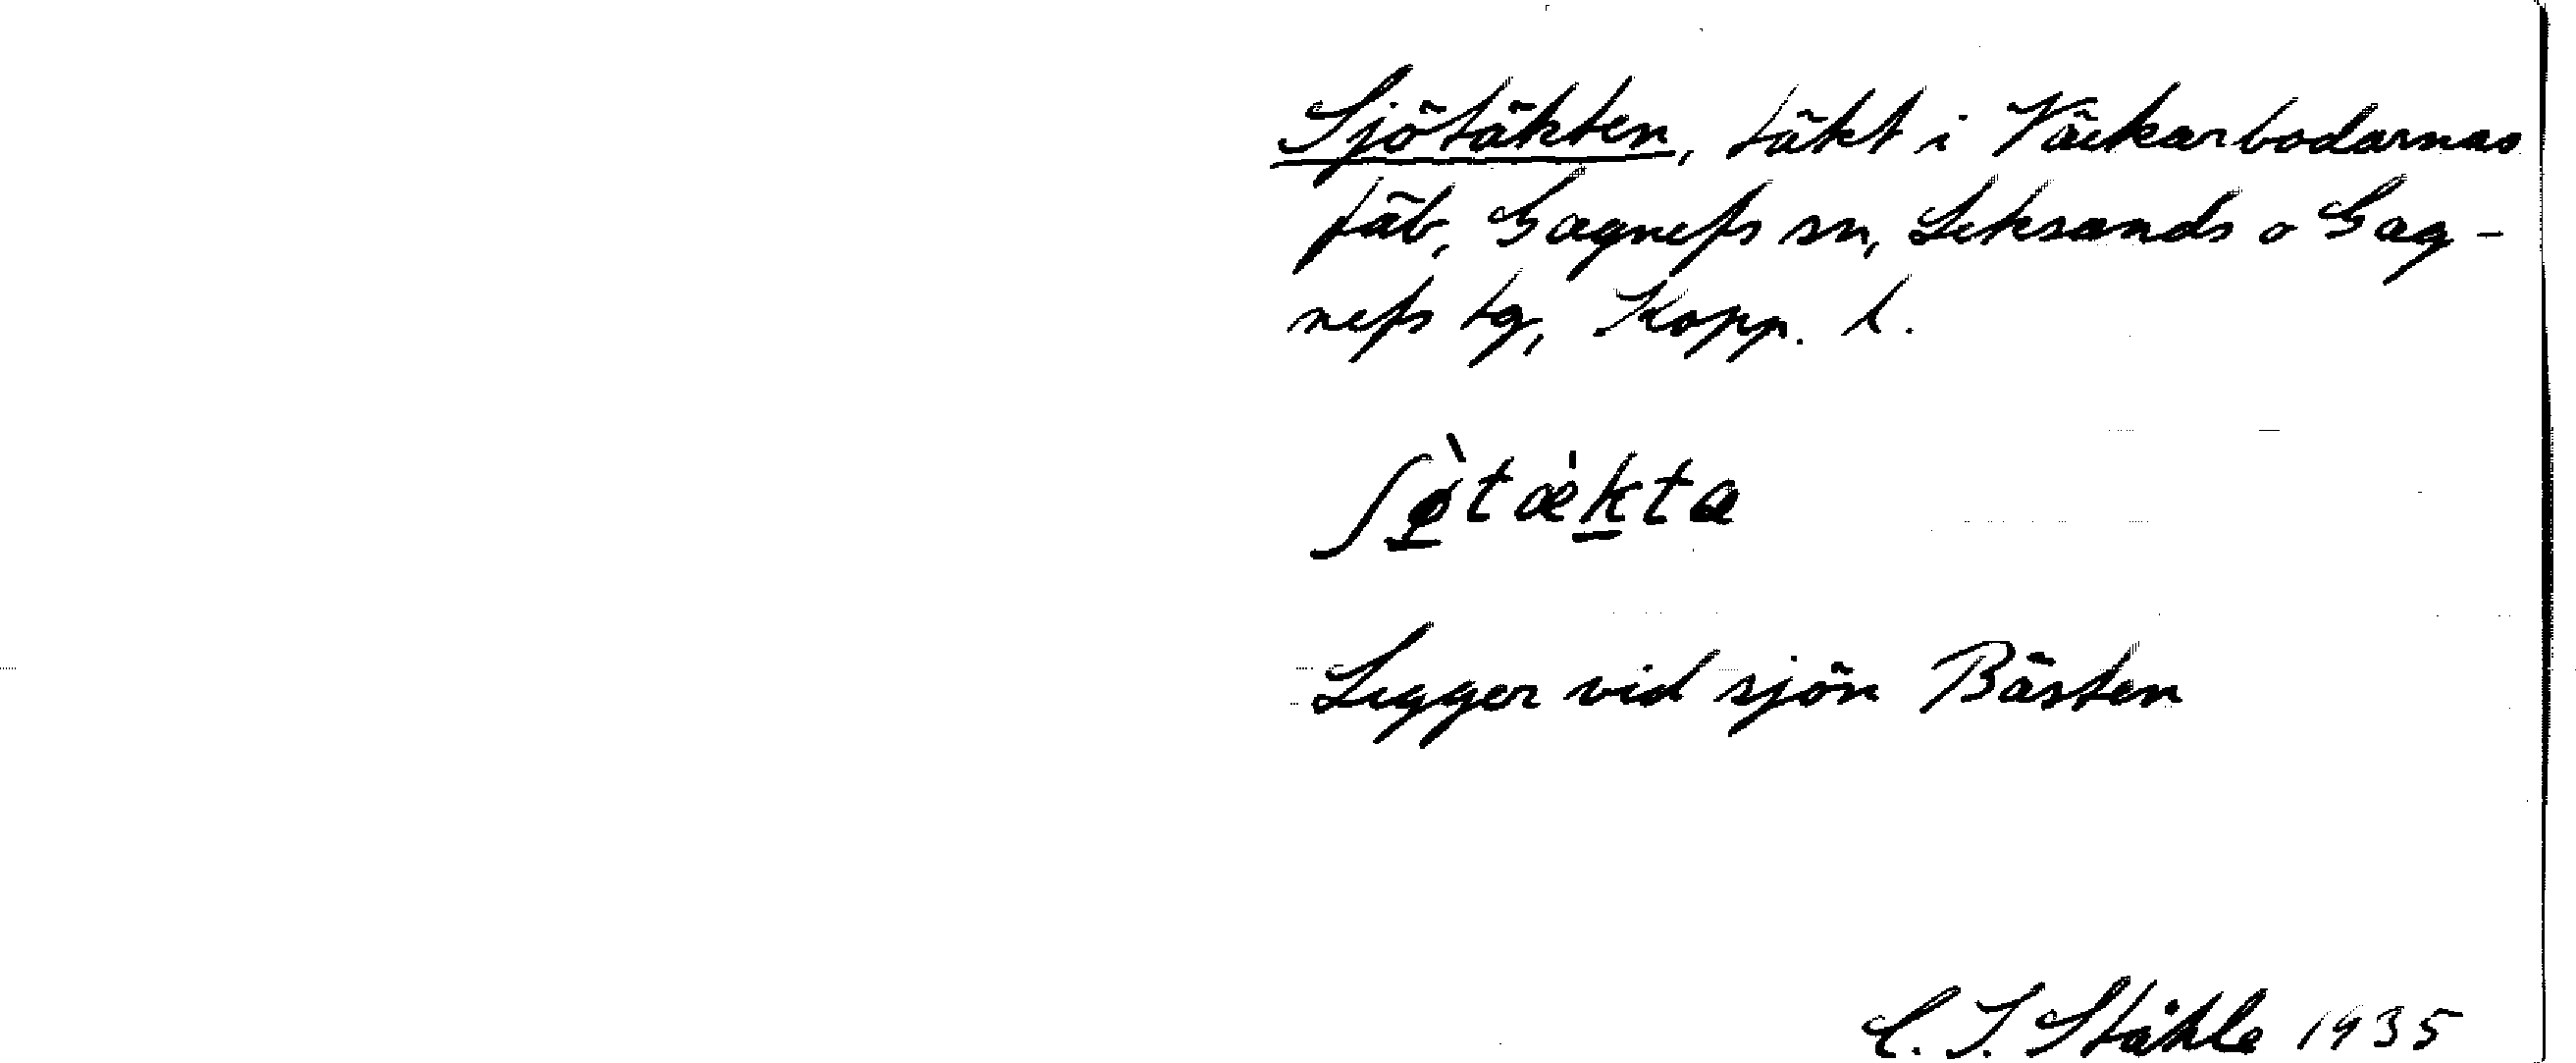 Sjötäkten, täkt i Väckarbodarnas
fäb, Gagnefs sn, Leksands o Gag-
nefs tg, Kopp. l.
ʃø̀tæ̀kta
Ligger vid sjön Bästen
C. I. Ståhle 1935